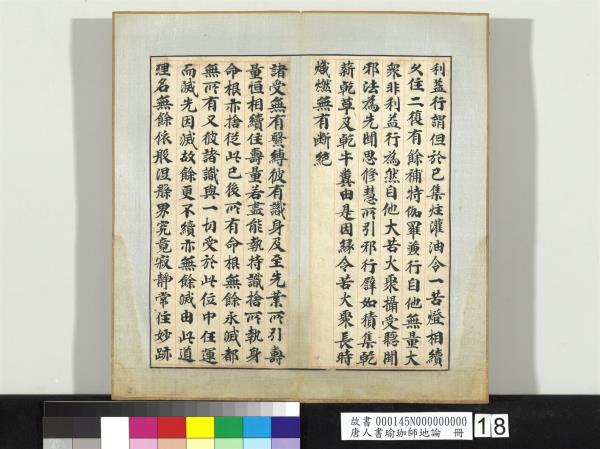 利益行謂但於已集炷灌油令一苦燈相續
久住二復有餘補特伽羅發行自他無量大
衆非利益行為然自他大苦火聚攝受聽聞
邪法為先聞思修慧所引邪行譬如積集乾
薪乾草及乾牛糞由是因緣令苦火聚長時
熾燃無有斷絕
諸受無有繫縛彼有識身及至先業所引壽
量恒相續住壽量若盡能執持識捨所執身
命根亦捨從此已後所有命根無餘永滅都
無所有又彼諸識與一切受於此位中任運
而滅先因滅故餘更不續亦無餘滅由此道
理名無餘依般涅槃界究竟寂靜常住妙跡
故書 000145N000000000
唐人書瑜珈師地論 冊
18